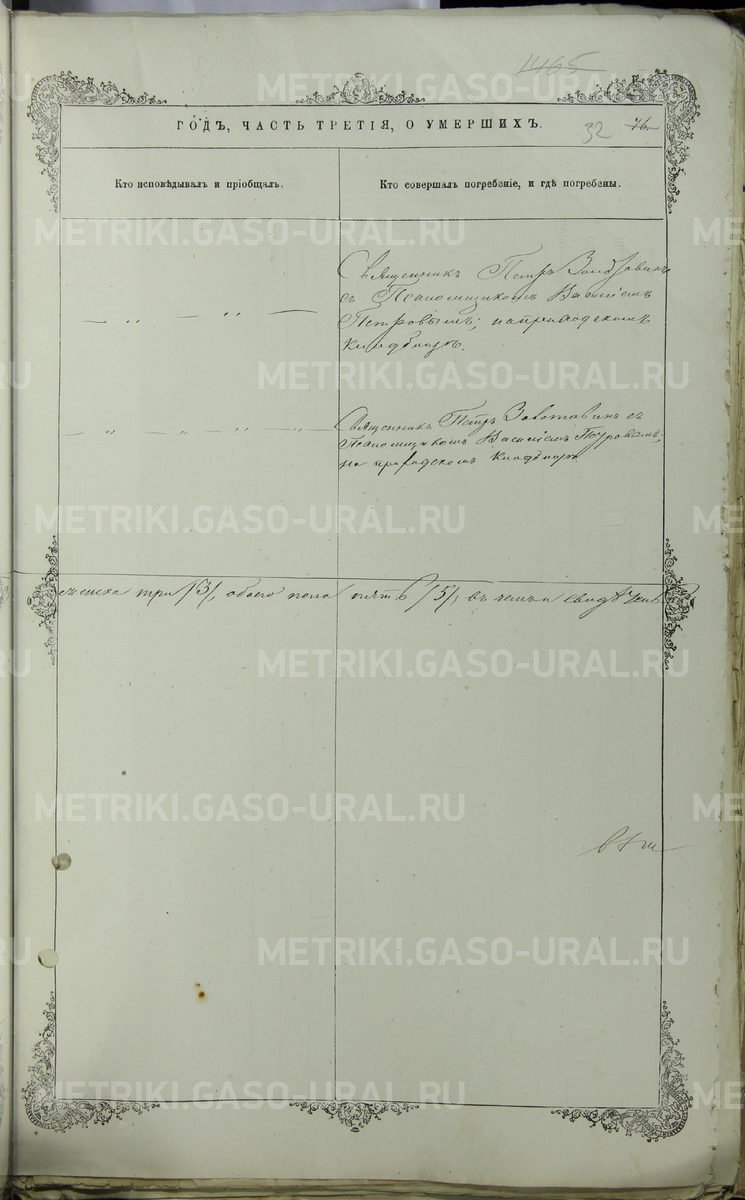 1465
ГОДЪ, ЧАСТЬ ТРЕТІЯ, О УМЕРШИХЪ.
32 76
Кто исповѣдывалъ и пріобщалъ.
Кто совершалъ погребеніе, и гдѣ погребены.
Священникъ Петръ
съ Псаломщикомъ Василіемъ
Петровымъ; на приходскомъ
кладбищѣ.
Священникъ Петръ съ
Псаломщикомъ Василіемъ Петровымъ,
на приходскомъ кладбищѣ
женска три /3/, обоего пола пять /5/; въ чемъ и
METRIKI.GASO-URAL.RU